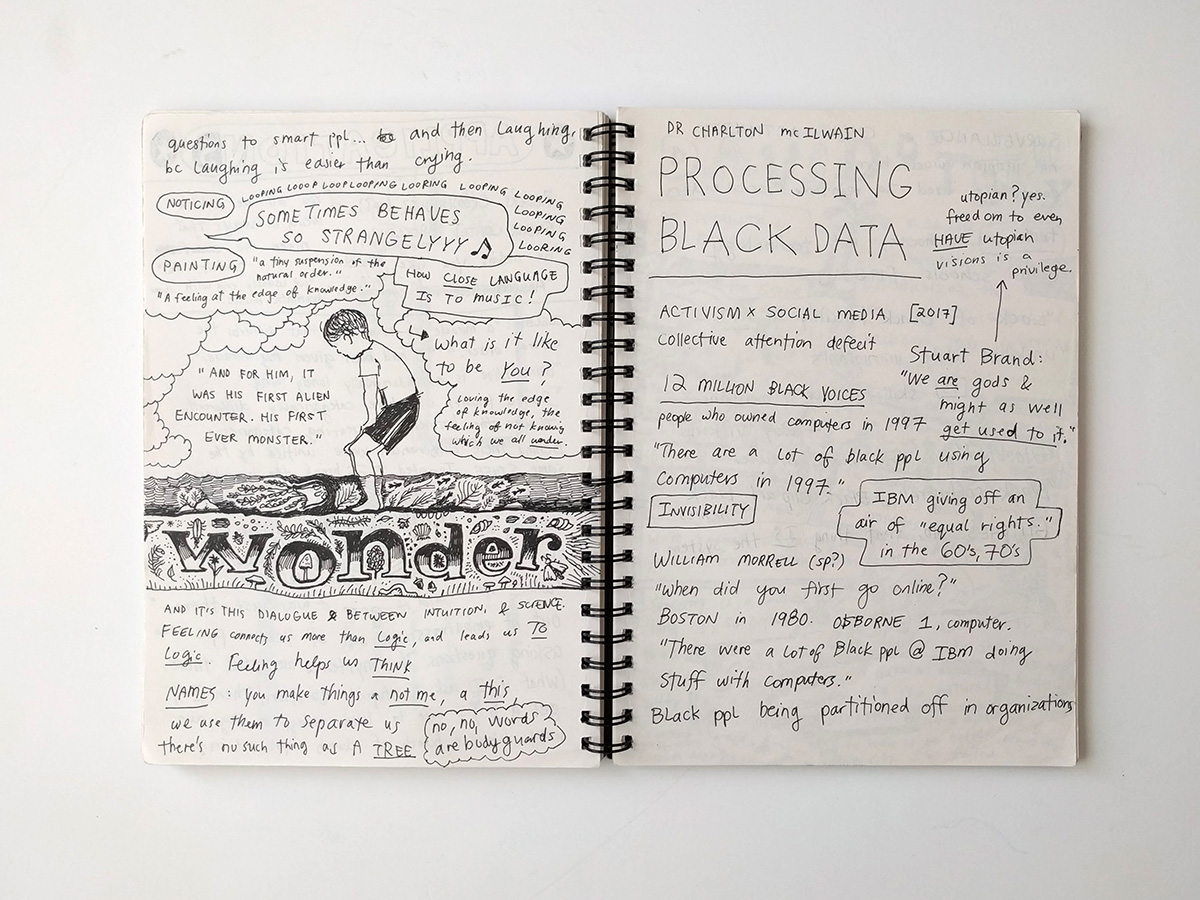 questions to smart ppl... and then laughing,
bc laughing is easier than crying.
LOOPING LOOOP LOOPLOOPING LOORING LOOPING LOOPING
LOOPING
LOOPING
LOORING
NOTICING
SOMETIMES BEHAVES
SO STRANGELYYY
PAINTING
"a tiny suspension of the
natural order."
"A feeling at the edge of knowledge."
HOW CLOSE LANGUAGE
IS TO MUSIC!
what is it like
to be You?
Loving the edge
of knowledge, the
feeling of not knowing
which we all wonder.
"AND FOR HIM, IT
WAS HIS FIRST ALIEN
ENCOUNTER. HIS FIRST
EVER MONSTER."
wonder
AND IT'S THIS DIALOGUE & BETWEEN INTUITION, & SCIENCE.
FEELING connects us more than Logic, and leads us TO
Logic. Feeling helps us THINK
NAMES: you make things a not me, a this,
we use them to separate us
there's no such thing as A TREE
no, no, words
are bodyguards
DR CHARLTON McILWAIN
PROCESSING
BLACK DATA
utopian? yes.
freedom to even
HAVE utopian
visions is a
privilege.
ACTIVISM x SOCIAL MEDIA [2017]
Collective attention defecit
Stuart Brand:
"We are gods &
might as well
get used to it."
12 MILLION BLACK VOICES
people who owned computers in 1997
"There are a lot of black ppl using
Computers in 1997."
INVISIBILITY
IBM giving off an
air of "equal rights."
in the 60's, 70's
WILLIAM MORRELL (sp?)
"When did you first go online?"
BOSTON in 1980. OSBORNE 1, computer.
"There were a lot of Black ppl @ IBM doing
Stuff with computers."
Black ppl being partitioned off in organizations